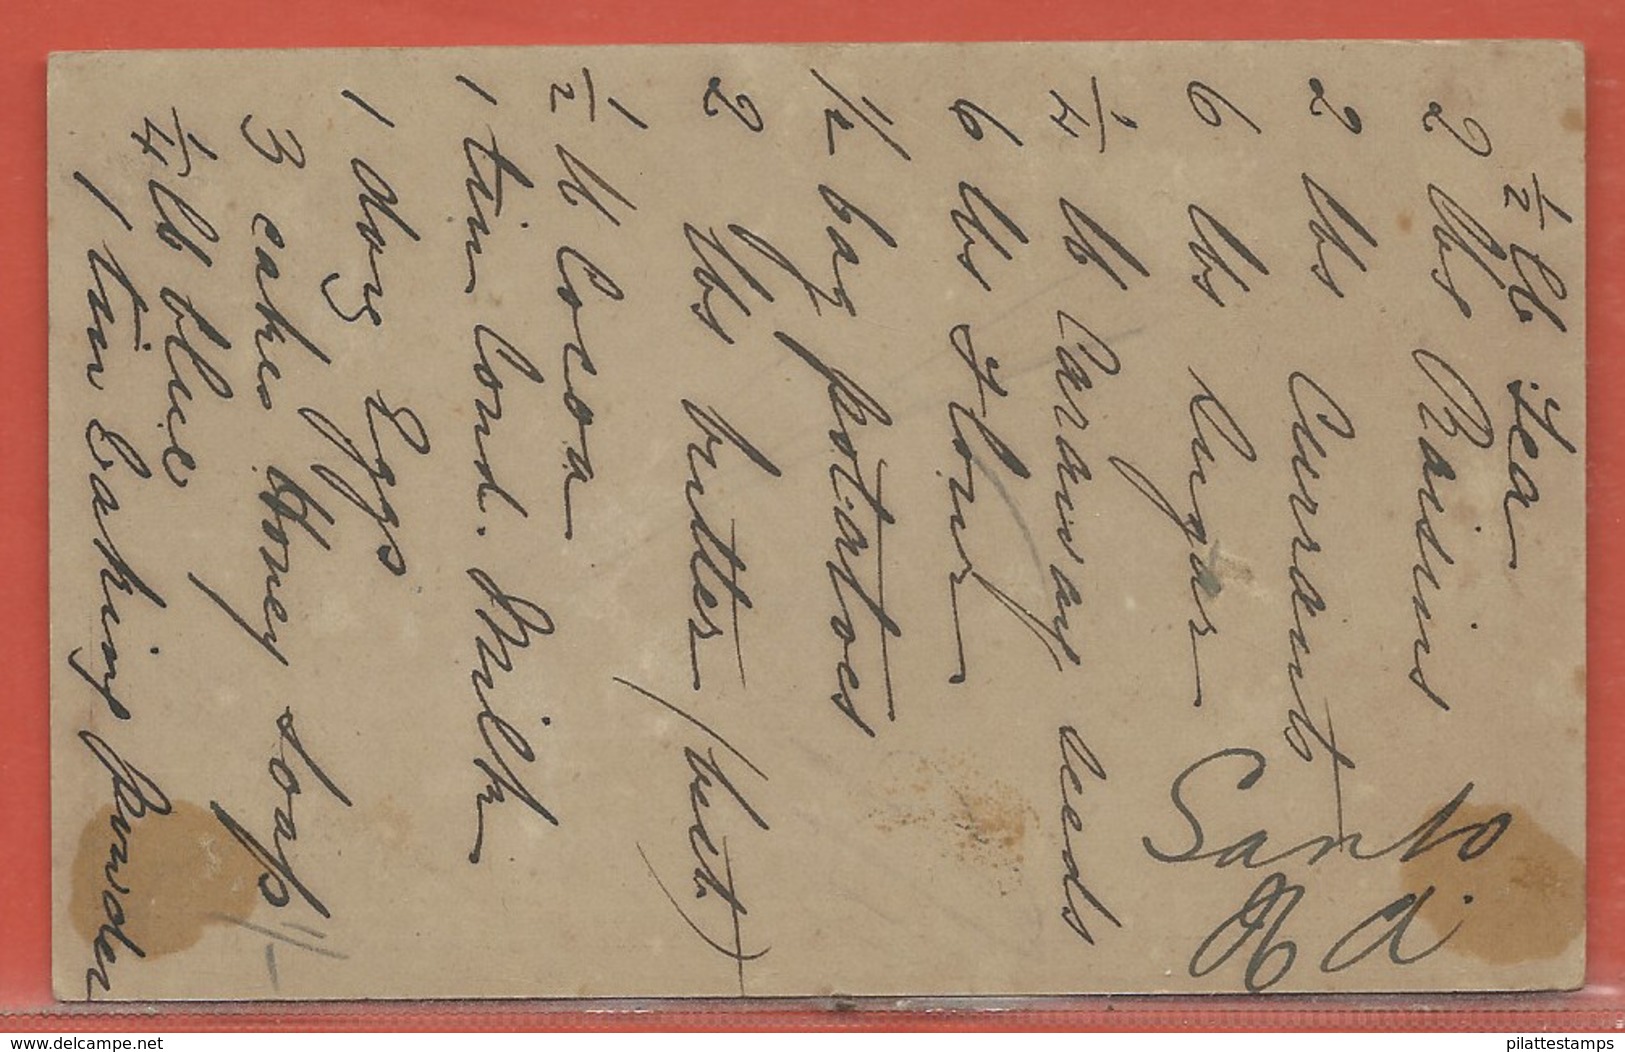 ½ lb Tea
2 lbs Raisins
2 lbs Currants
6 lbs Sugar
¼ lb Caraway seeds
6 lbs Flour
½ bag potatoes
2 lbs butter (best)
½ lb Cocoa
1 tin Cond. Milk
1 doz Eggs
3 cakes Honey Soap 1/-
¼ lb blue
1 tin Baking Powder
www.delcampe.net
pilattestamps